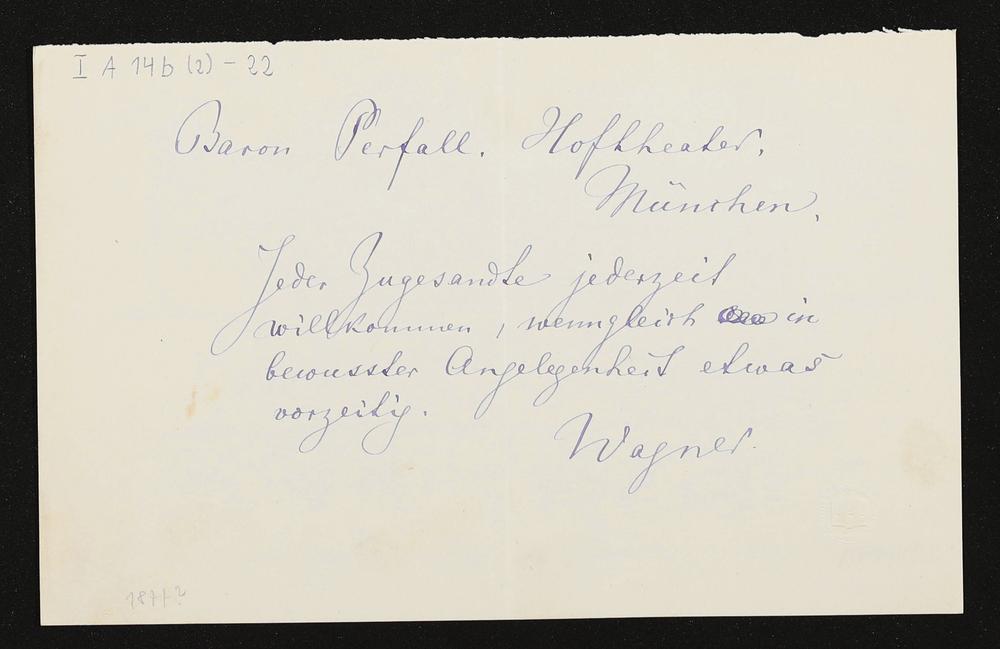 I A 14b (2) - 22
Baron Perfall. Hoftheater,
München,
Jeder Zugesandte jederzeit
willkommen, wenngleich in
bewusster Angelegenheit etwas
vorzeitig.
Wagner.